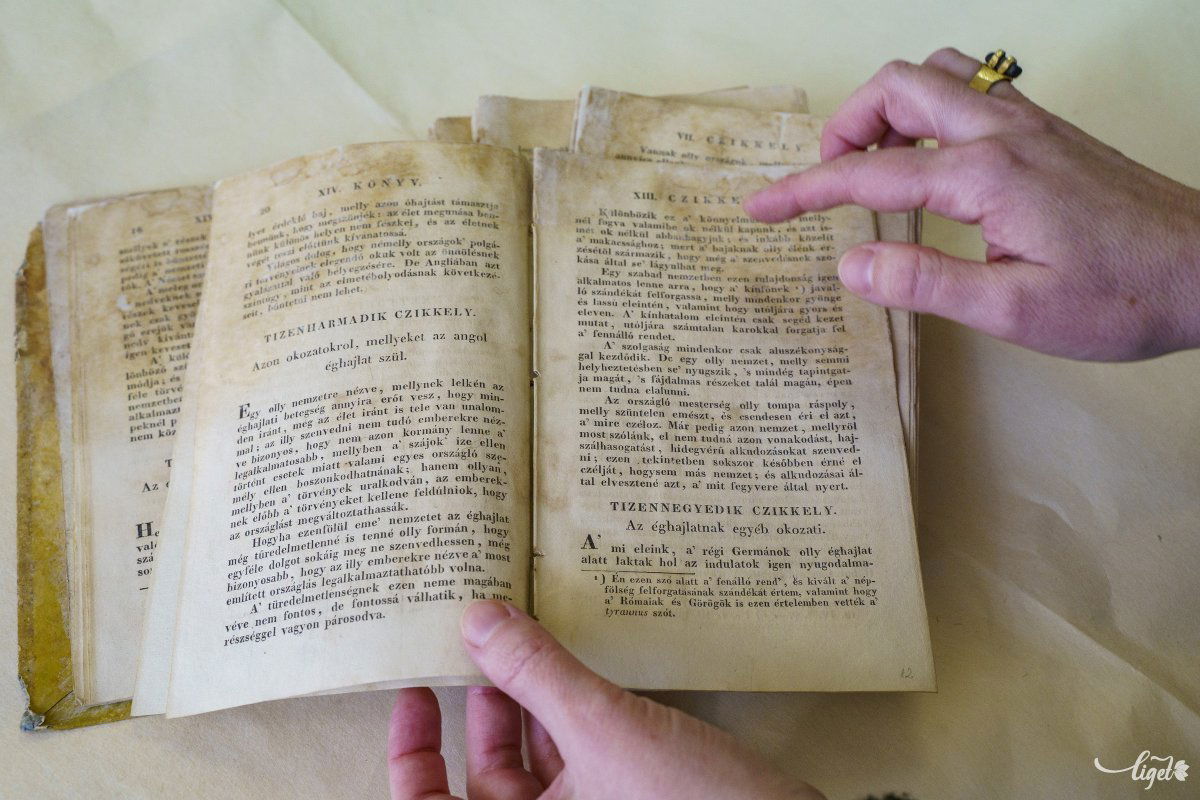 16
mellyek a' részek
XIV. KÖNYV.
20
lyet érdeklő baj, melly azon óhajtást támasztja
bennünk, hogy megszünjék: az élet megunása ben-
nünk különös helyen nem fészkel, és az életnek
véget teszi előttünk kivánatossá.
Világos dolog, hogy némelly országok' polgá-
ri törvényeinek elegendő okuk volt az önölésnek
gyalázattal való bélyegzésére. De Angliában azt
szintúgy, mint az elmetébolyodásnak következé-
seit, büntetni nem lehet.
TIZENHARMADIK CZIKKELY.
Azon okozatokrol, mellyeket az angol
éghajlat szül.
Egy olly nemzetre nézve, mellynek lelkén az
éghajlati betegség annyira erőt vesz, hogy min-
den iránt, még az élet iránt is tele van unalom-
mal; az illy szenvedni nem tudó emberekre néz-
ve bizonyos, hogy nem azon kormány lenne a'
legalkalmatosabb, mellyben a' szájok' ize ellen
történt esetek miatt valami egyes országló sze-
mély ellen boszonkodhatnának; hanem ollyan,
mellyben a' törvények uralkodván, az emberek-
nek előbb a' törvényeket kellene feldúlniok, hogy
az országlást megváltoztathassák.
Hogyha ezenfölül eme' nemzetet az éghajlat
még türedelmetlenné is tenné olly formán, hogy
egyféle dolgot sokáig meg ne szenvedhessen, még
bizonyosabb, hogy az illy emberekre nézve a' most
említett országlás legalkalmaztathatóbb volna.
A' türedelmetlenségnek ezen neme magában
véve nem fontos, de fontossá válhatik, ha me-
részséggel vagyon párosodva.
VII. CZIKKELY
Vannak olly országok, melly
XIII. CZIKKE
Különbözik ez a' könnyelmű melly-
nél fogva valamibe ok nélkül kapunk, és azt is-
mét ok nélkül abbanhagyjuk; és inkább közelít
a' makacssághoz; mert a' bajaknak olly élénk ér-
zésétől származik, hogy még a' szenvedésnek szo-
kása által se' lágyulhat meg.
Egy szabad nemzetben ezen tulajdonság igen
alkalmatos lenne arra, hogy a' kinfőnek ¹) javal-
ló szándékát felforgassa, melly mindenkor gyönge
és lassú eleintén, valamint hogy utóljára gyors és
eleven. A' kinhatalom eleintén csak segéd kezet
mutat, utóljára számtalan karokkal forgatja fel
a' fennálló rendet.
A' szolgaság mindenkor csak aluszékonyság-
gal kezdődik. De egy olly nemzet, melly semmi
helyheztetésben se' nyugszik, 's mindég tapintgat-
ja magát, 's fájdalmas részeket talál magán, épen
nem tudna elalunni.
Az országló mesterség olly tompa ráspoly,
melly szüntelen emészt, és csendesen éri el azt,
a' mire czéloz. Már pedig azon nemzet, mellyről
most szólánk, el nem tudná azon vonakodást, haj-
szálhasogatást, hidegvérű alkudozásokat szenved-
ni; ezen tekintetben sokszor későbben érné el
czélját, hogysem más nemzet; és alkudozásai ál-
tal elvesztené azt, a' mit fegyvere által nyert.
TIZENNEGYEDIK CZIKKELY.
Az éghajlatnak egyéb okozati.
A' mi eleink, a' régi Germánok olly éghajlat
alatt laktak hol az indulatok igen nyugodalma-
¹) Én ezen szó alatt a' fenálló rend', és kivált a' nép-
fölség felforgatásának szándékát értem, valamint hogy
a' Rómaiak és Görögök is ezen értelemben vették a'
tyrannus szót.
12.
liget